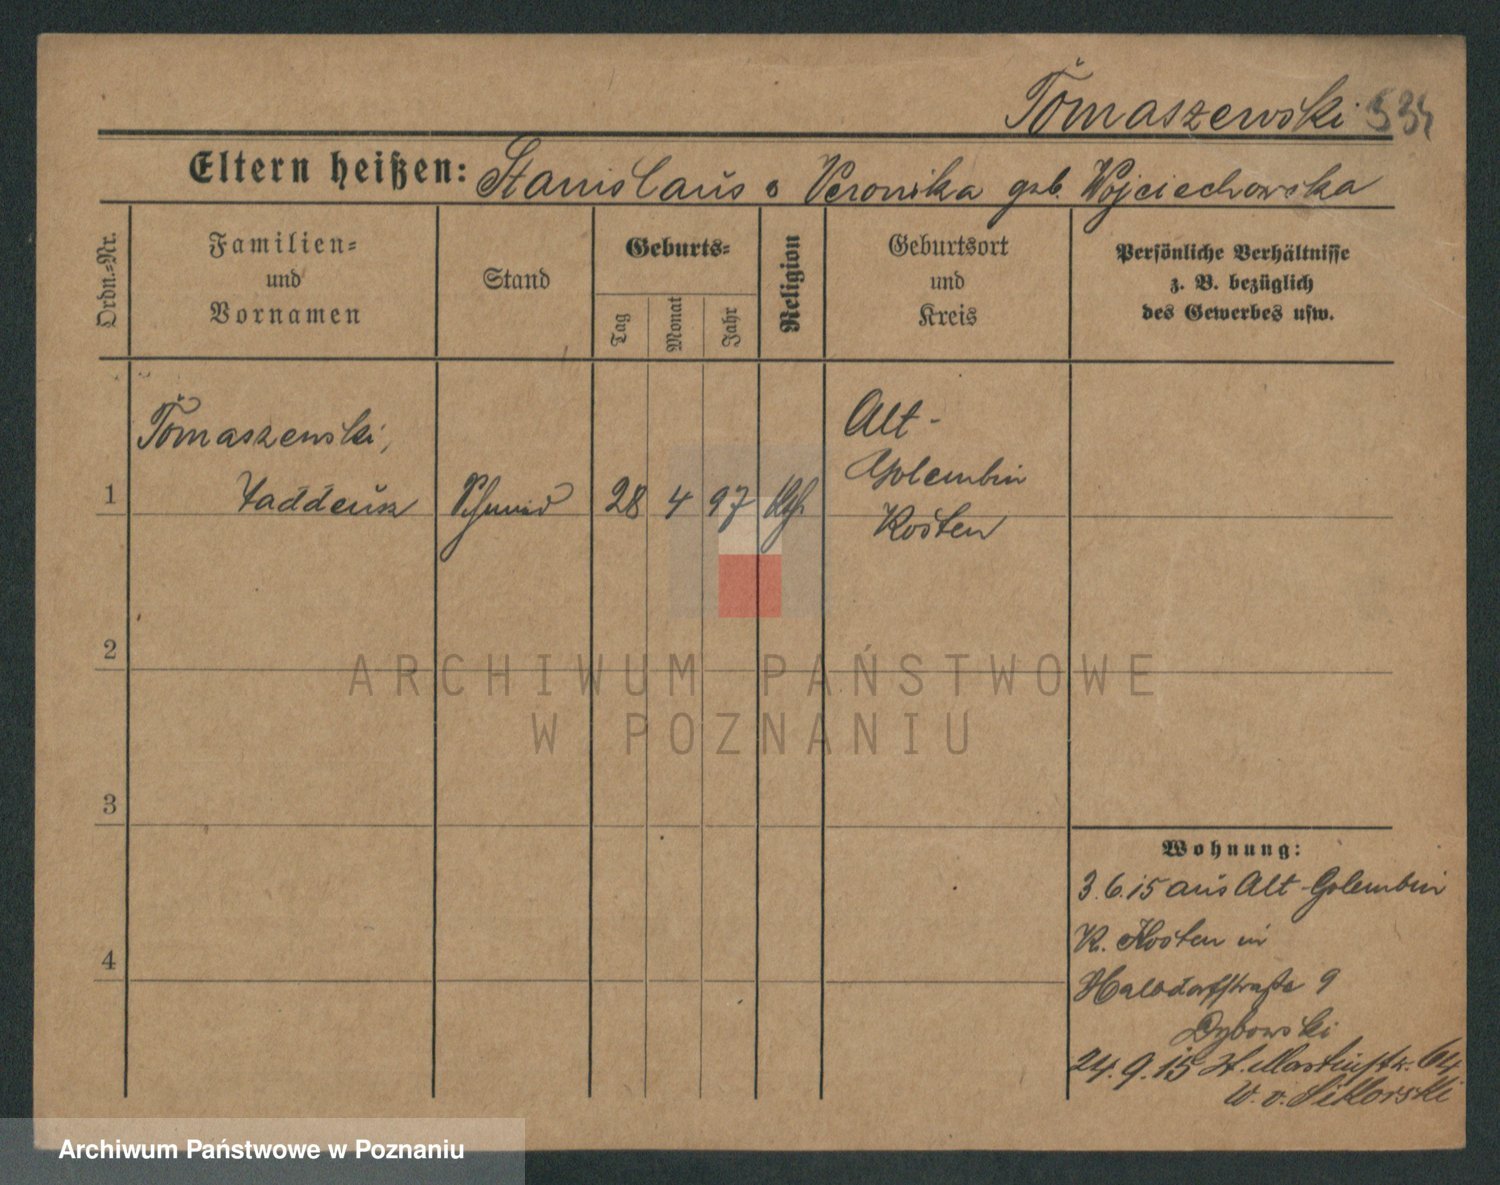 Tomaszewski 534
Eltern heißen: Stanislaus o Veronika geb. Wojciechowska
Ordn.=Nr.
Familien=
und
Vornamen
Stand
Geburts=
Tag
Monat
Jahr
Religion
Geburtsort
und
Kreis
Persönliche Verhältnisse
z. B. bezüglich
des Gewerbes usw.
Tomaszewski,
1 Taddeus 28 4 97 kth.
Alt-
Golembin
Kosten
2
3
4
Wohnung:
3.6.15 aus Alt-Golembin
K. Kosten in
Halbdorfstraße 9
Dybowski
24.9.15 St. Martinstr. 64
W. v. Sikorski
ARCHIWUM PAŃSTWOWE
W POZNANIU
Archiwum Państwowe w Poznaniu